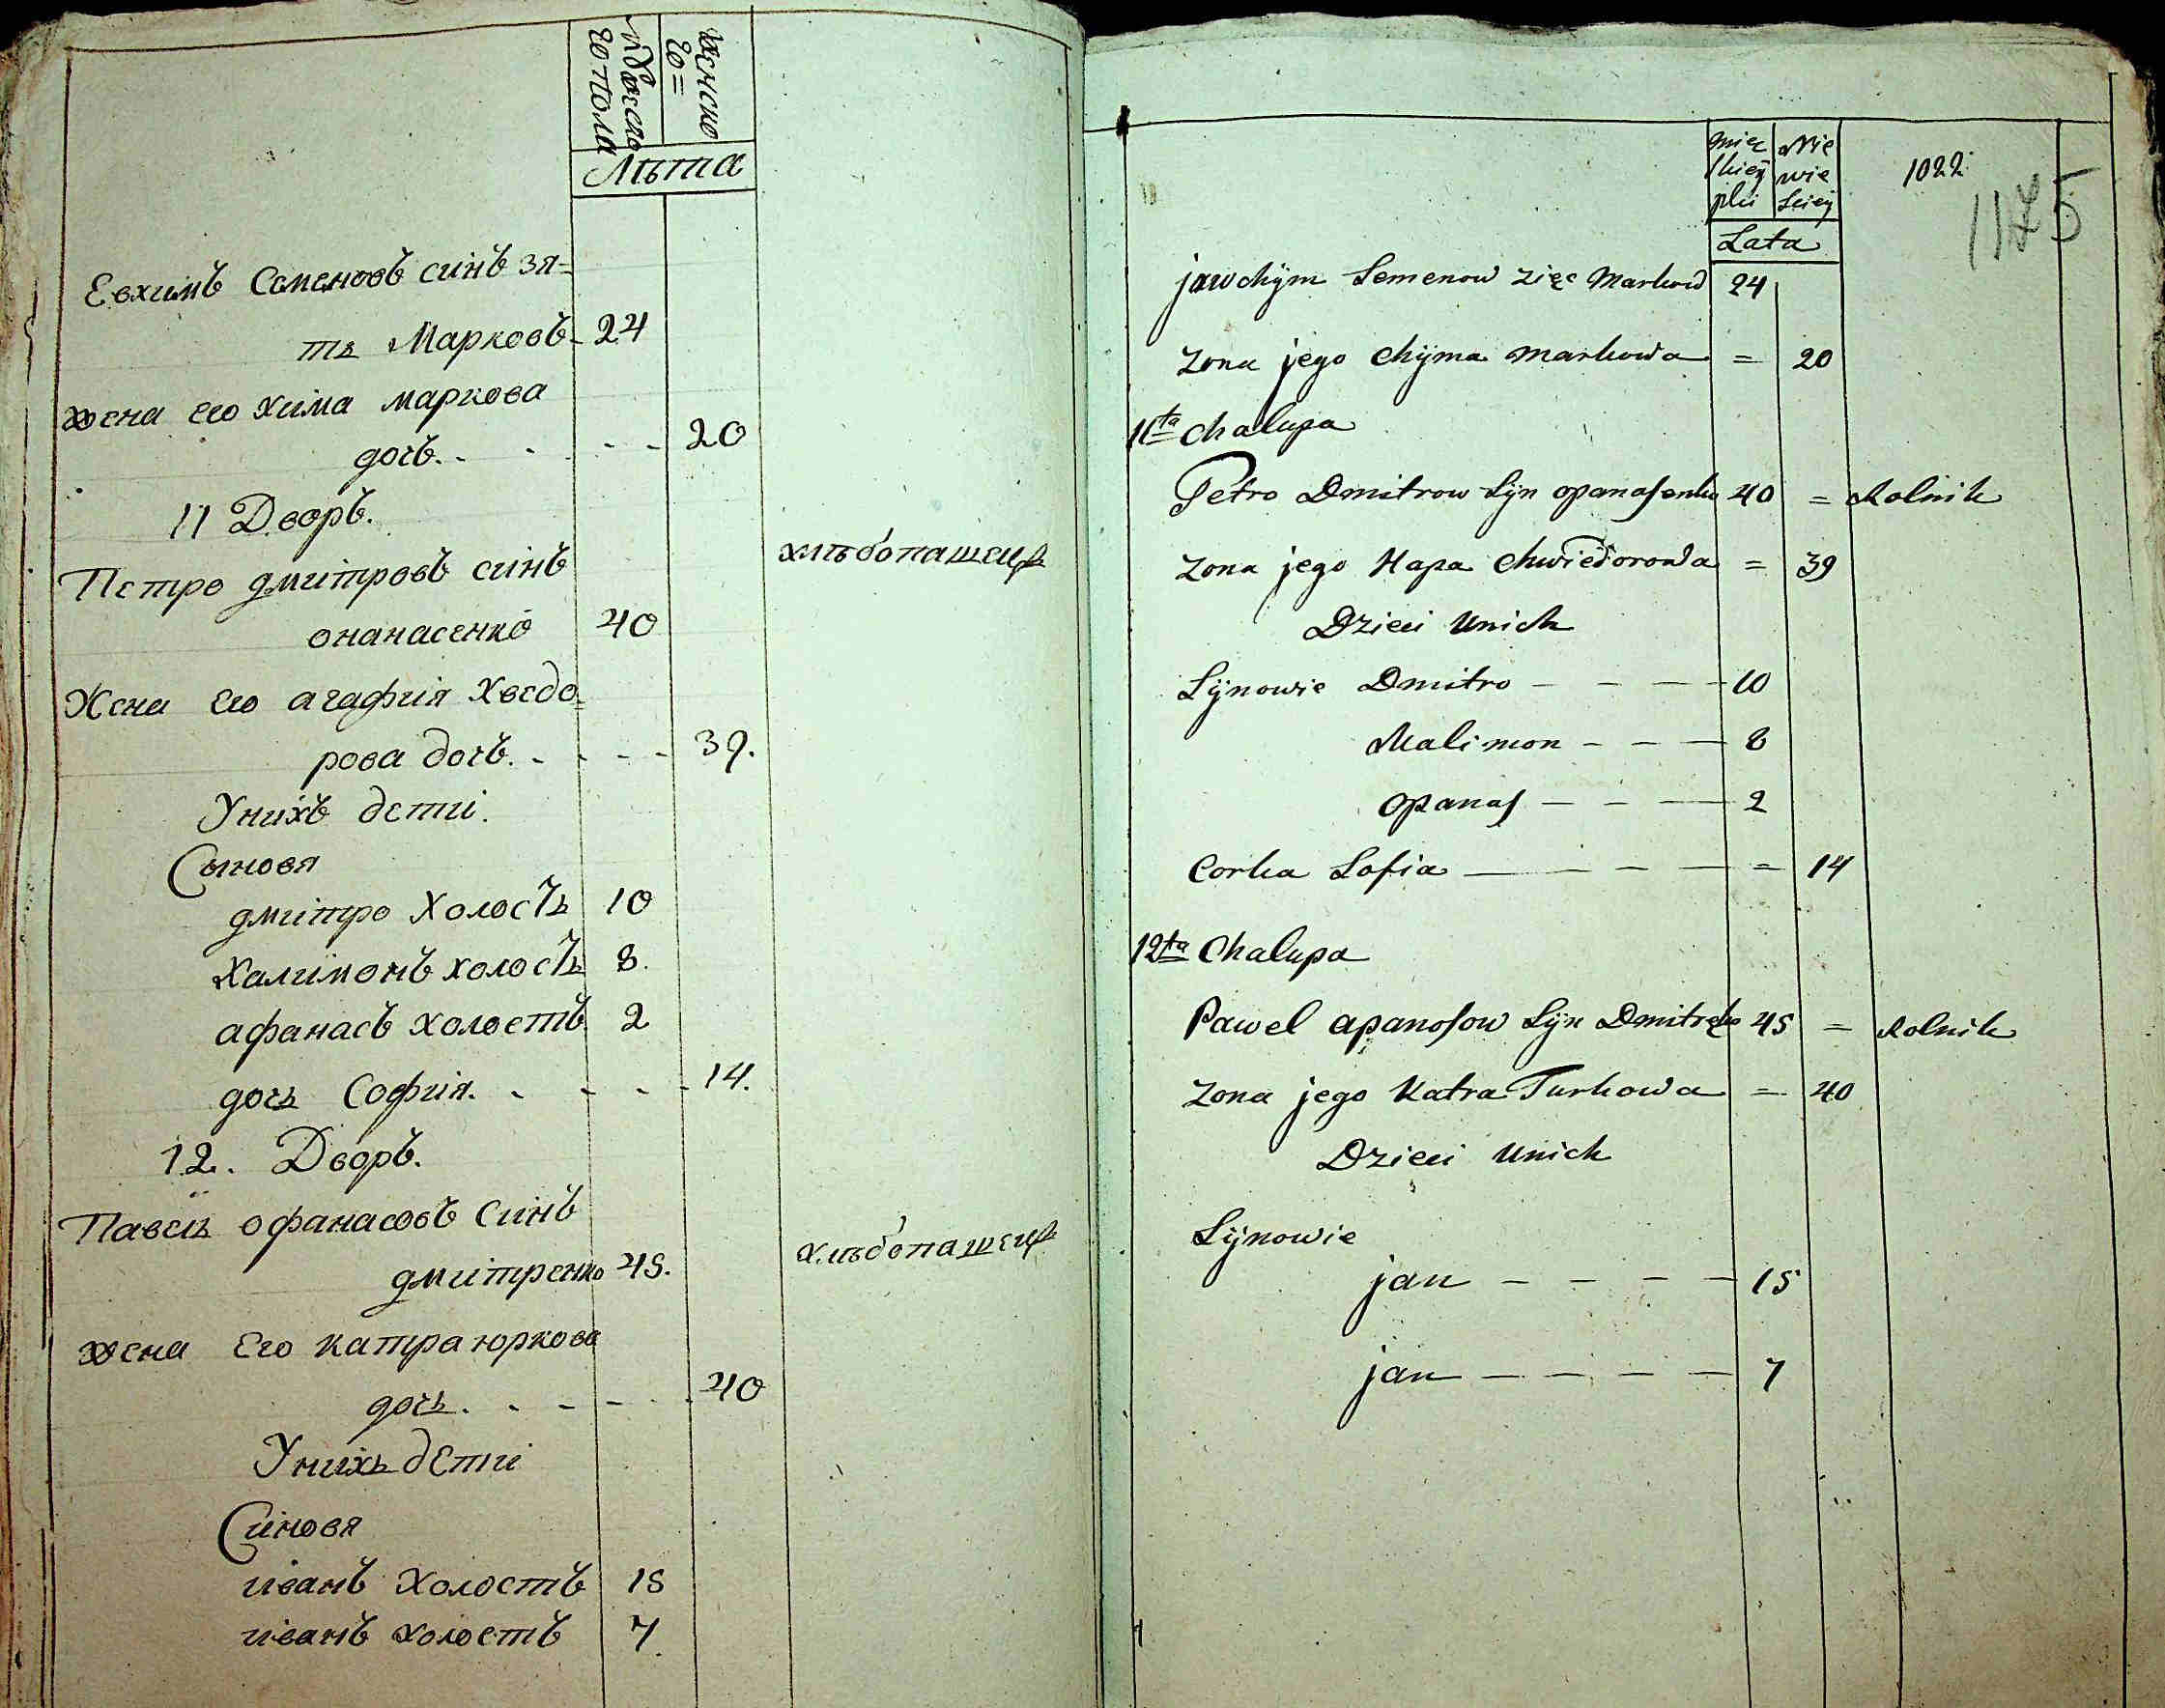 мужеско
го пола
женско
го =
Лѣта
Евхимъ Семеновъ синъ зя=
ть Марковъ - 24
жена его хима маркова
дочъ. - - - - 20
11 Дворъ.
Петро дмитровъ синъ хлѣбопашецъ
опанасенко 40
Жена его агафия Хведо=
рова дочъ. - - - - 39.
Унихъ дети.
Сыновя
дмитро Холостъ 10
Халимонъ холостъ 8.
афанасъ холостъ 2
дочь София. - - - - 14.
12. Дворъ.
Павелъ офанасовъ Синъ
дмитренко 45. хлѣбопашецъ
жена Его катра юркова
дочь. - - - - 40
Унихъ дЕти
Синовя
иванъ Холостъ 15
иванъ холостъ 7.
męz
skiey
płci
Nie
wie
sciey
1022
1175
Lata
jawchÿm Semenow zięc Markow 24
zona jego chÿma markowa = 20
11ta chalupa
Petro Dmitrow Sÿn opanasenko 40 = Rolnik
zona jego Hapa chwiedorowa = 39
Dzieci unich
Sÿnowie Dmitro - - - - 10
Malimon - - - 8
opanas - - - 2
Corka Sofia - - - - = 14
12ta Chalupa
Pawel apanosow Sÿn Dmitręko 45 = Rolnik
zona jego Katra Jurkowa = 40
Dzieci unich
Sÿnowie
jan - - - - 15
jan - - - - 7